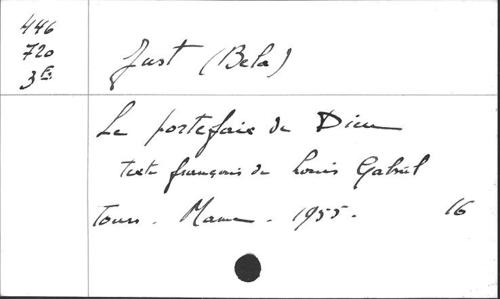 446
720
3E.
Just (Bela)
Le portefaix de Dieu
texte français de Louis Gabriel
Tours. Mame. 1955. 16